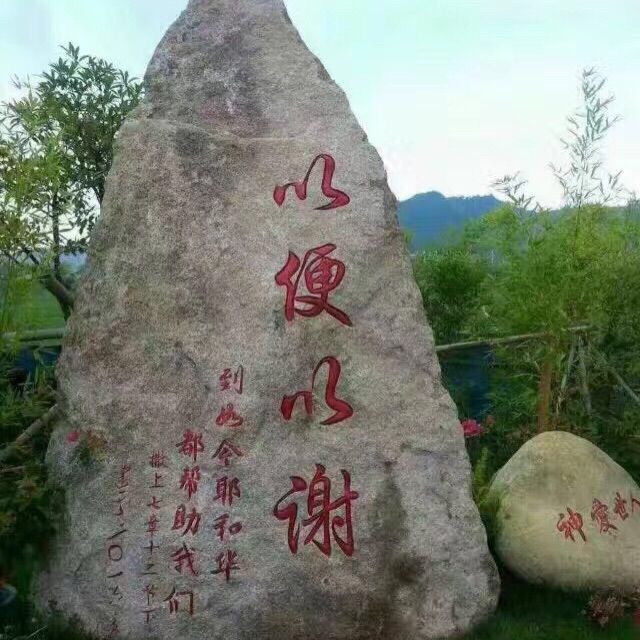 以便以谢
到如今耶和华
都帮助我们
撒上七章十二节下
神爱世人